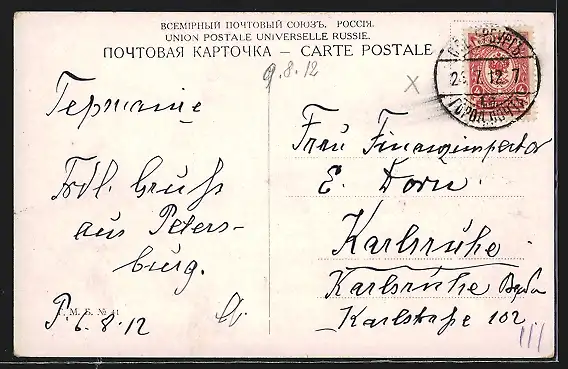 ВСЕМІРНЫЙ ПОЧТОВЫЙ СОЮЗЪ. РОССІЯ.
UNION POSTALE UNIVERSELLE RUSSIE.
ПОЧТОВАЯ КАРТОЧКА – CARTE POSTALE
9.8.12
X
7.12.7
ГОРОД. ПОЧТА
Германіе
Frdl. Gruß
aus Peters-
burg.
P. 6.8.12
Г. М. Б. № 41
Frau Finanzinspektor
E. Dorn.
Karlsruhe
Karlsruhe
Karlstraße 102